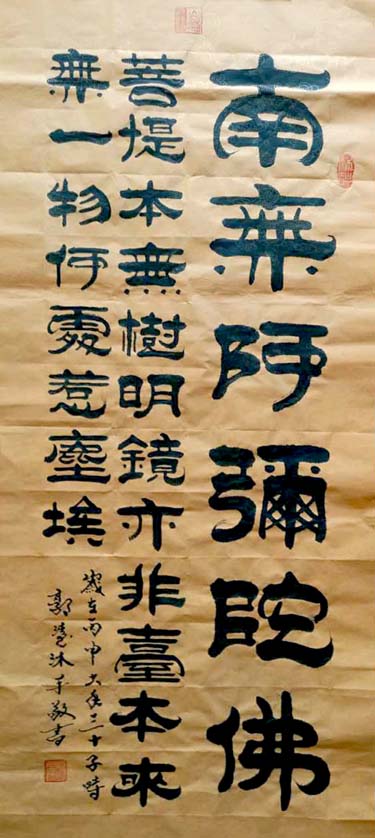 南無阿彌陀佛
菩提本無樹明鏡亦非臺本來
無一物何處惹塵埃
歲在丙申大年三十子時
郭慧沐手敬書